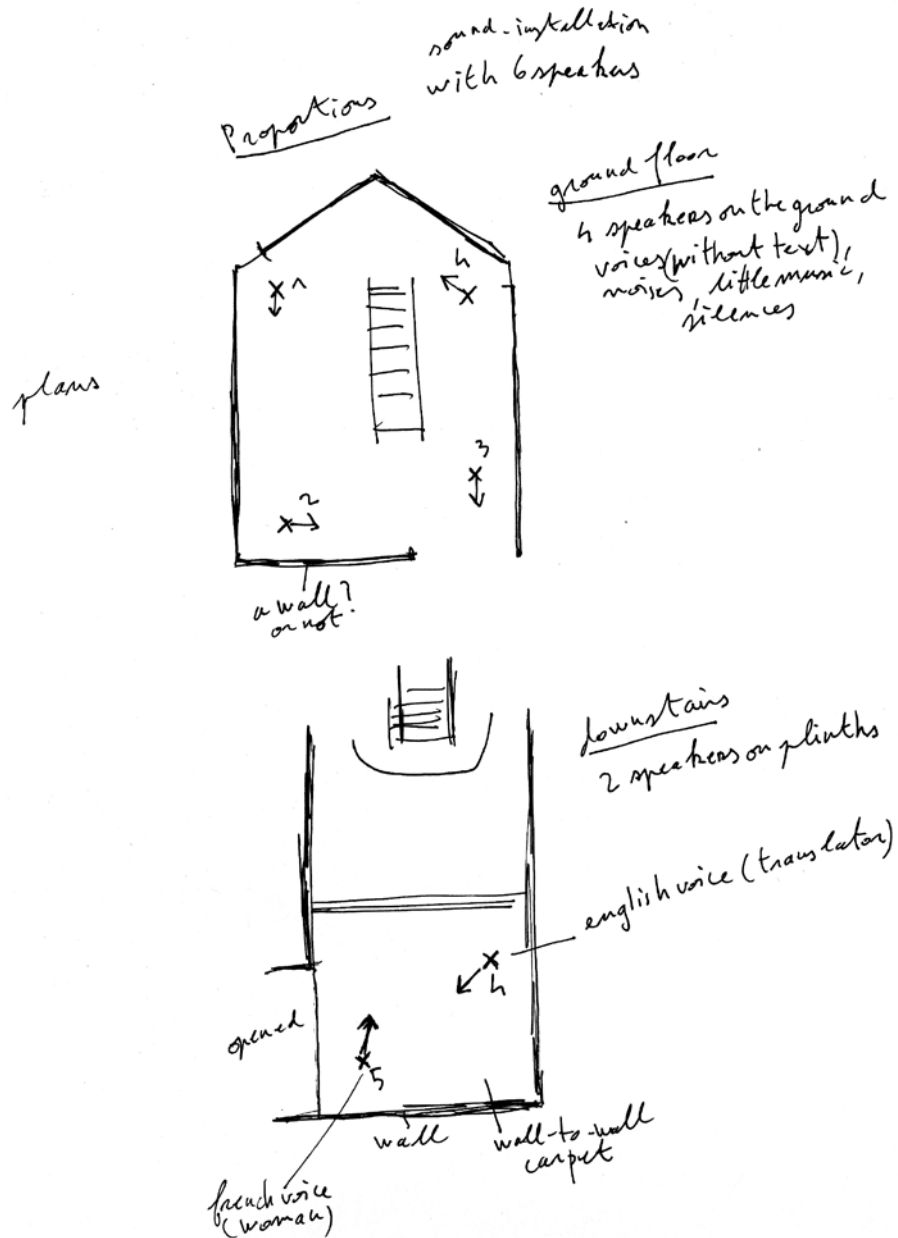 sound-installation
with 6 speakers
Proportions
ground floor
4 speakers on the ground
voices (without text),
noises, little music,
silences
plans
1
4
3
2
a wall?
or not?
downstairs
2 speakers on plinths
english voice (translator)
4
opened
5
wall
wall-to-wall
carpet
french voice
(woman)